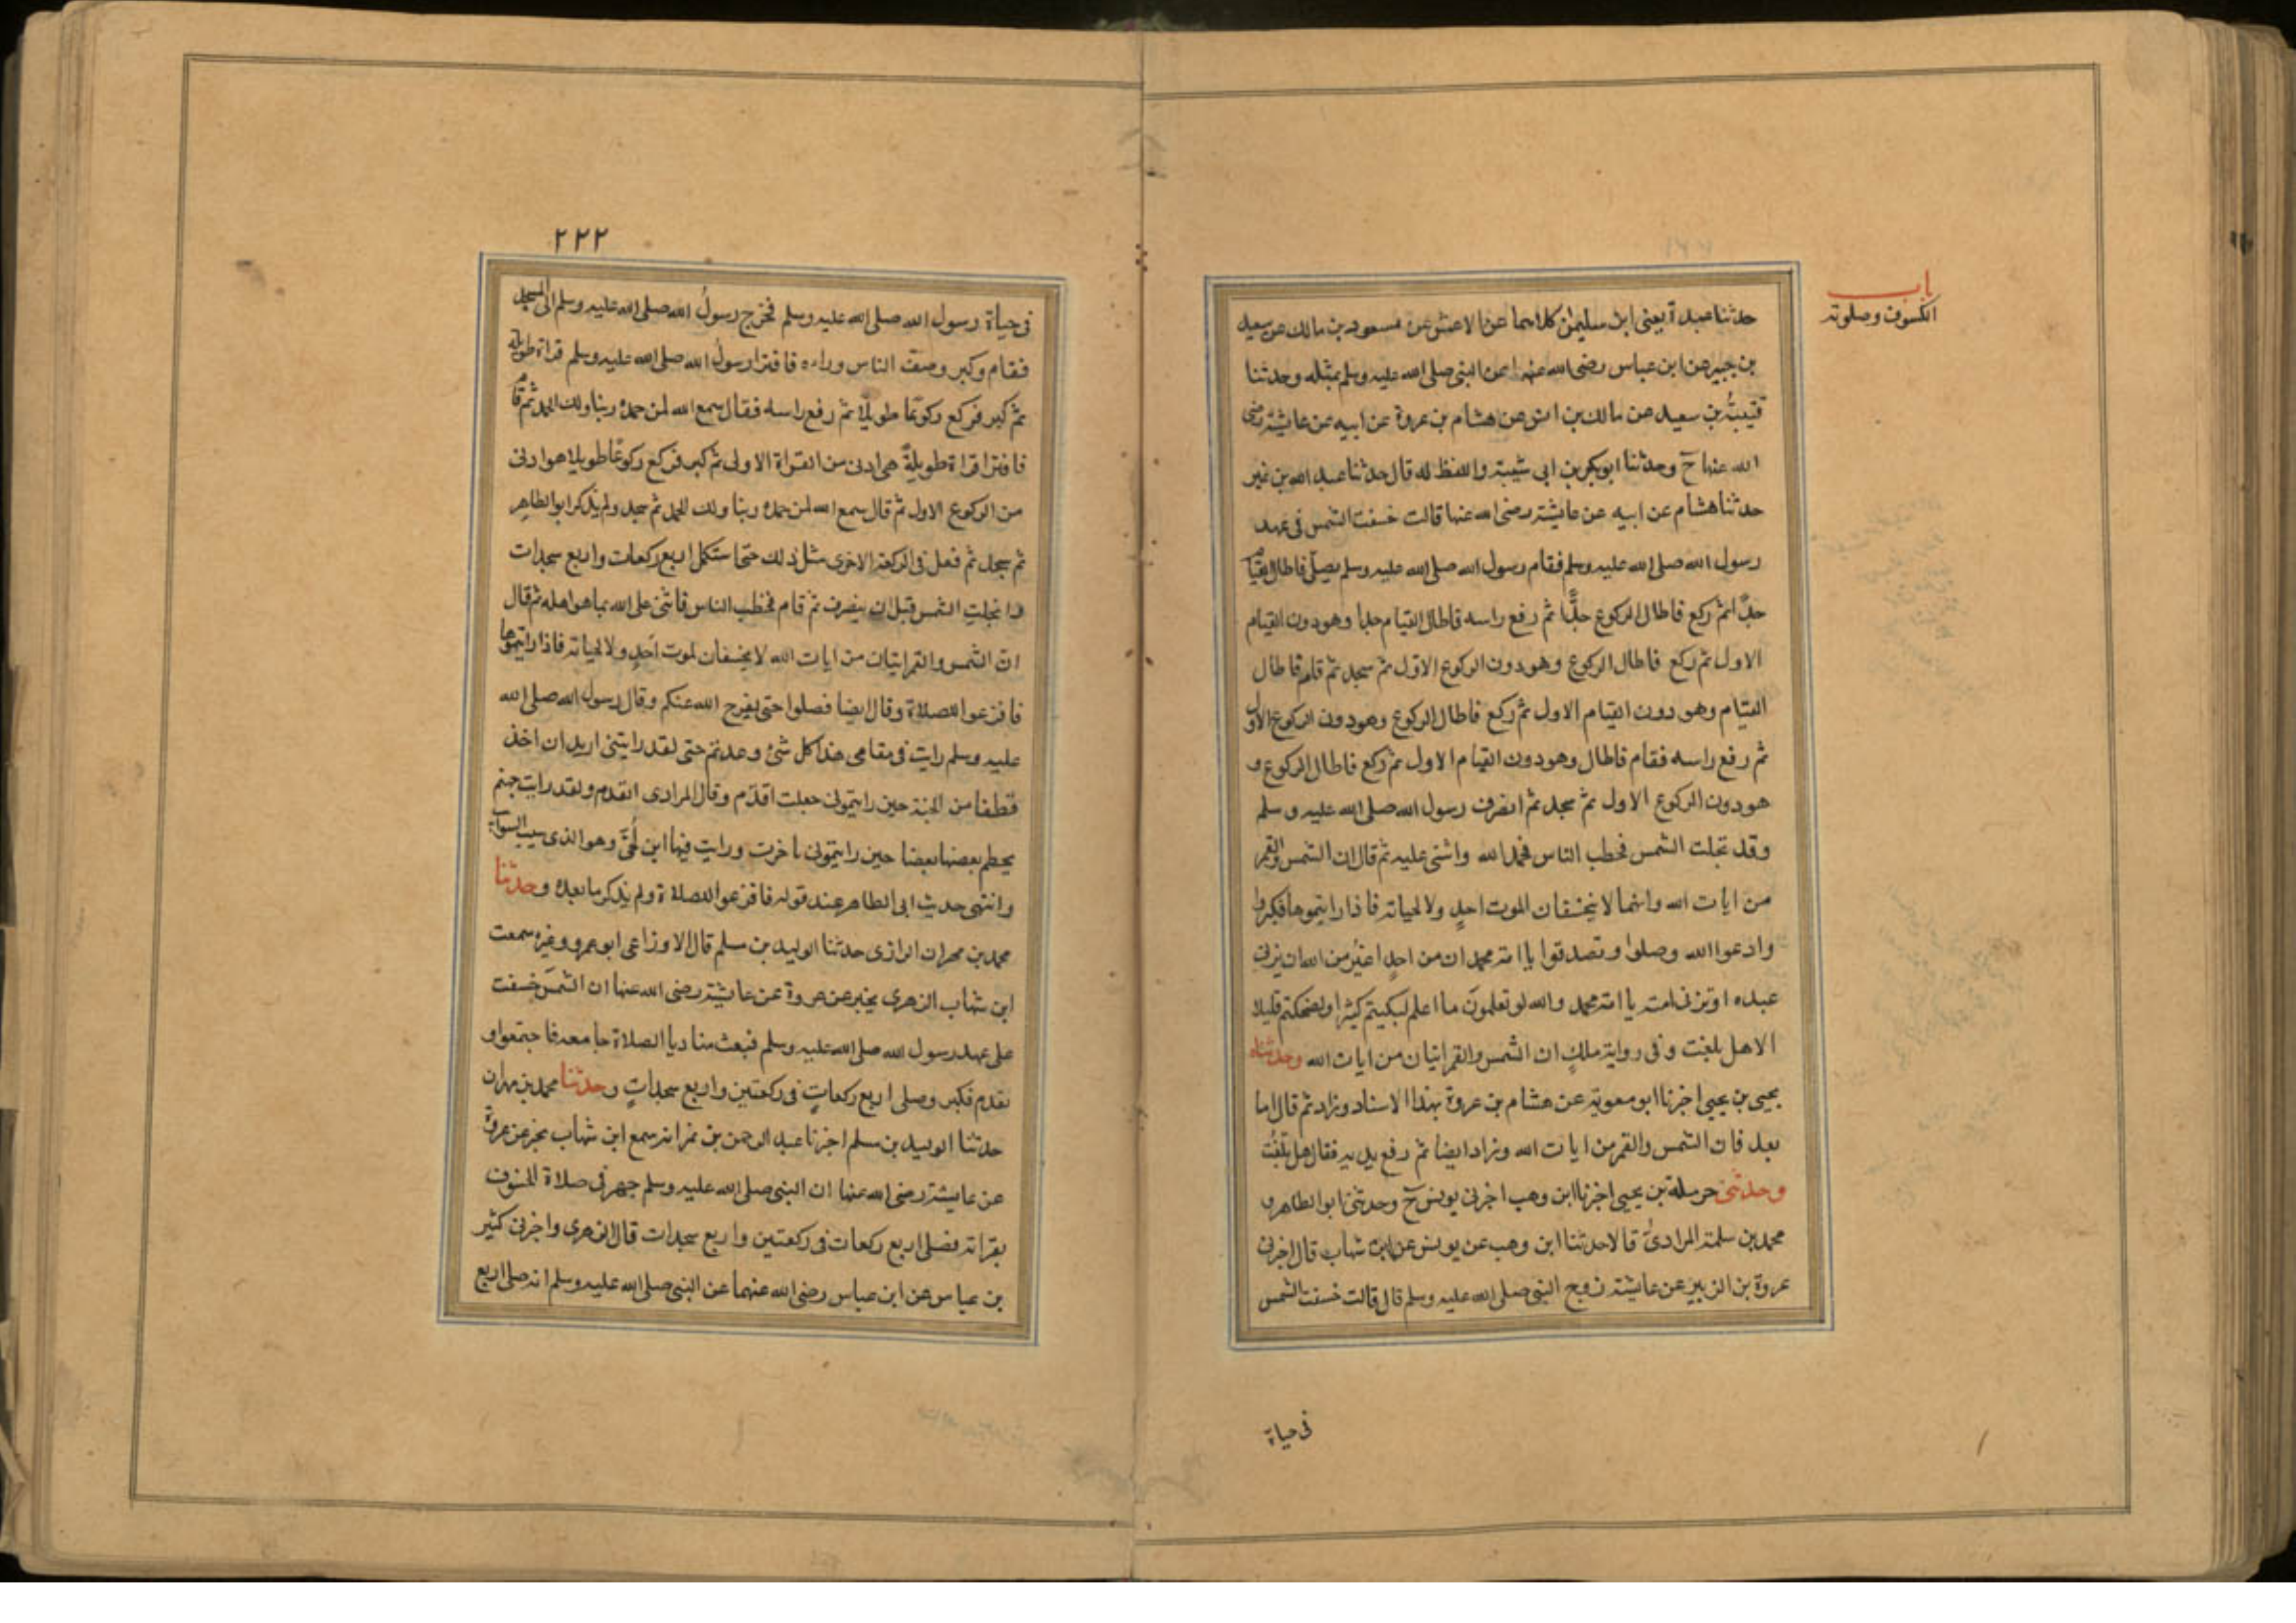 باب
الكسوف وصلوته
حدثنا عبدة يعنى ابن سليمان كلاهما عن الاعمش عن مسعود بن مالك عن سعيد
بن جبير عن ابن عباس رضى الله عنهما عن النبى صلى الله عليه وسلم بمثله وحدثنا
قتيبة بن سعيد عن مالك بن انس عن هشام بن عروة عن ابيه عن عايشة رضى
الله عنها ح وحدثنا ابو بكر بن ابى شيبة واللفظ له قال حدثنا عبد الله بن نمير
حدثنا هشام عن ابيه عن عايشة رضى الله عنها قالت خسفت الشمس فى عهد
رسول الله صلى الله عليه وسلم فقام رسول الله صلى الله عليه وسلم يصلى فاطال القيام
جدًّا ثم ركع فاطال الركوع جدًّا ثم رفع راسه فاطال القيام جدا وهو دون القيام
الاول ثم ركع فاطال الركوع وهو دون الركوع الاول ثم سجد ثم قام فاطال
القيام وهو دون القيام الاول ثم ركع فاطال الركوع وهو دون الركوع الاول
ثم رفع راسه فقام فاطال وهو دون القيام الاول ثم ركع فاطال الركوع و
هو دون الركوع الاول ثم سجد ثم انصرف رسول الله صلى الله عليه وسلم
وقد تجلت الشمس فخطب الناس فحمد الله واثنى عليه ثم قال ان الشمس والقمر
من ايات الله وانهما لا ينخسفان لموت احدٍ ولا لحياته فاذا رايتموها فكبروا
وادعوا الله وصلوا وتصدقوا يا امة محمد ان من احدٍ اغير من الله ان يزنى
عبده او تزنى امته يا امة محمد والله لو تعلمون ما اعلم لبكيتم كثيرا ولضحكتم قليلا
الا هل بلغت وفى رواية ملكٍ ان الشمس والقمر ايتان من ايات الله وحدثناه
يحيى بن يحيى اخبرنا ابو معوية عن هشام بن عروة بهذا الاسناد وزاد ثم قال اما
بعد فان الشمس والقمر من ايات الله وزاد ايضا ثم رفع يديه فقال هل بلغت
وحدثنى حرملة بن يحيى اخبرنا ابن وهب اخبرنى يونس ح وحدثنى ابو الطاهر و
محمد بن سلمة المرادى قالا حدثنا ابن وهب عن يونس عن ابن شهاب قال اخبرنى
عروة بن الزبير عن عايشة زوج النبى صلى الله عليه وسلم قال قالت خسفت الشمس
فى حياة
٢٢٢
فى حياة رسول الله صلى الله عليه وسلم فخرج رسول الله صلى الله عليه وسلم الى المسجد
فقام وكبر وصف الناس وراءه فاقترا رسول الله صلى الله عليه وسلم قراة طويلة
ثم كبر فركع ركوعًا طويلًا ثم رفع راسه فقال سمع الله لمن حمده ربنا ولك الحمد ثم قام
فاقترا قراة طويلةً هى ادنى من القراة الاولى ثم كبر فركع ركوعًا طويلا هو ادنى
من الركوع الاول ثم قال سمع الله لمن حمده ربنا ولك الحمد ثم سجد ولم يذكر ابو الطاهر
ثم سجد ثم فعل فى الركعة الاخرى مثل ذلك حتى استكمل اربع ركعات واربع سجدات
فانجلت الشمس قبل ان ينصرف ثم قام فخطب الناس فاثنى على الله بما هو اهله ثم قال
ان الشمس والقمر ايتان من ايات الله لا يخسفان لموت احدٍ ولا لحياته فاذا رايتموها
فافزعوا للصلاة وقال ايضا فصلوا حتى يفرج الله عنكم وقال رسول الله صلى الله
عليه وسلم رايت فى مقامى هذا كل شئ وعدتم حتى لقد رايتنى اريد ان اخذ
قطفا من الجنة حين رايتمونى جعلت اقدم وقال المرادى اتقدم ولقد رايت جهنم
يحطم بعضها بعضا حين رايتمونى تاخرت ورايت فيها ابن لحى وهو الذى سيب السوائب
وانتهى حديث ابى الطاهر عند قوله فافزعوا للصلاة ولم يذكر ما بعده وحدثنا
محمد بن مهران الرازى حدثنا الوليد بن مسلم قال الاوزاعى ابو عمرو وغيره سمعت
ابن شهاب الزهرى يخبر عن عروة عن عايشة رضى الله عنها ان الشمس خسفت
على عهد رسول الله صلى الله عليه وسلم فبعث مناديا الصلاة جامعه فاجتمعوا و
تقدم فكبر وصلى اربع ركعاتٍ فى ركعتين واربع سجداتٍ وحدثنا محمد بن مهران
حدثنا الوليد بن مسلم اخبرنا عبد الرحمن بن نمر انه سمع ابن شهاب يخبر عن عروة
عن عايشة رضى الله عنها ان النبى صلى الله عليه وسلم جهر فى صلاة الخسوف
بقراته فصلى اربع ركعات فى ركعتين واربع سجدات قال الزهرى واخبرنى كثير
بن عباس عن ابن عباس رضى الله عنهما عن النبى صلى الله عليه وسلم انه صلى اربع